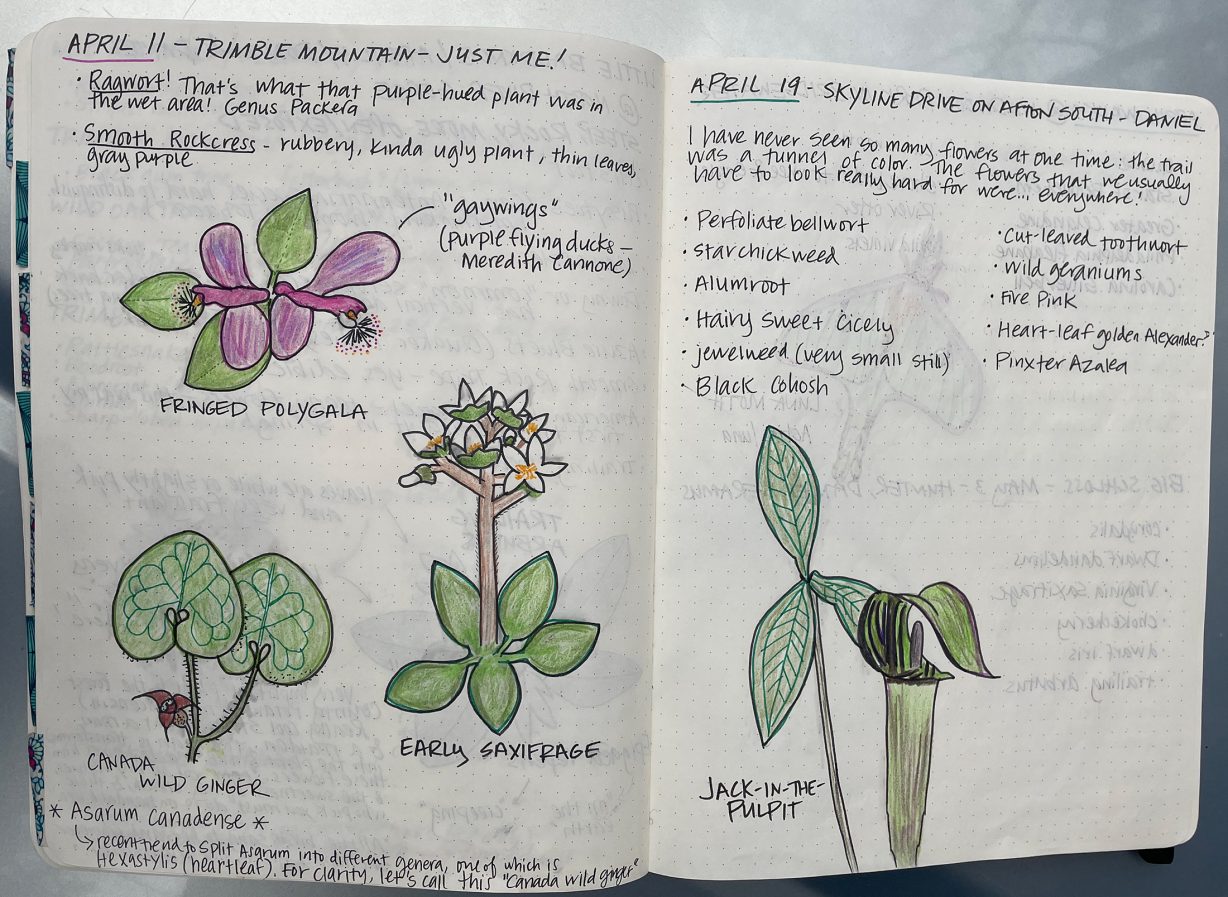 APRIL 11 - TRIMBLE MOUNTAIN - JUST ME!
• Ragwort! That's what that purple-hued plant was in
the wet area! Genus Packera
• Smooth Rockcress - rubbery, kinda ugly plant, thin leaves,
gray purple
"gaywings"
(purple flying ducks -
Meredith Cannone)
FRINGED POLYGALA
EARLY SAXIFRAGE
CANADA
WILD GINGER
* Asarum canadense *
↳ recent trend to split Asarum into different genera, one of which is
Hexastylis (heartleaf). For clarity, let's call this "Canada wild ginger"
APRIL 19 - SKYLINE DRIVE ON AFTON SOUTH - DANIEL
I have never seen so many flowers at one time: the trail
was a tunnel of color. The flowers that we usually
have to look really hard for were... everywhere!
• Perfoliate bellwort
• Star chickweed
• Alumroot
• Hairy Sweet Cicely
• jewelweed (very small still)
• Black Cohosh
• Cut-leaved toothwort
• Wild geraniums
• Fire Pink
• Heart-leaf golden Alexander?
• Pinxter Azalea
JACK-IN-THE-
PULPIT